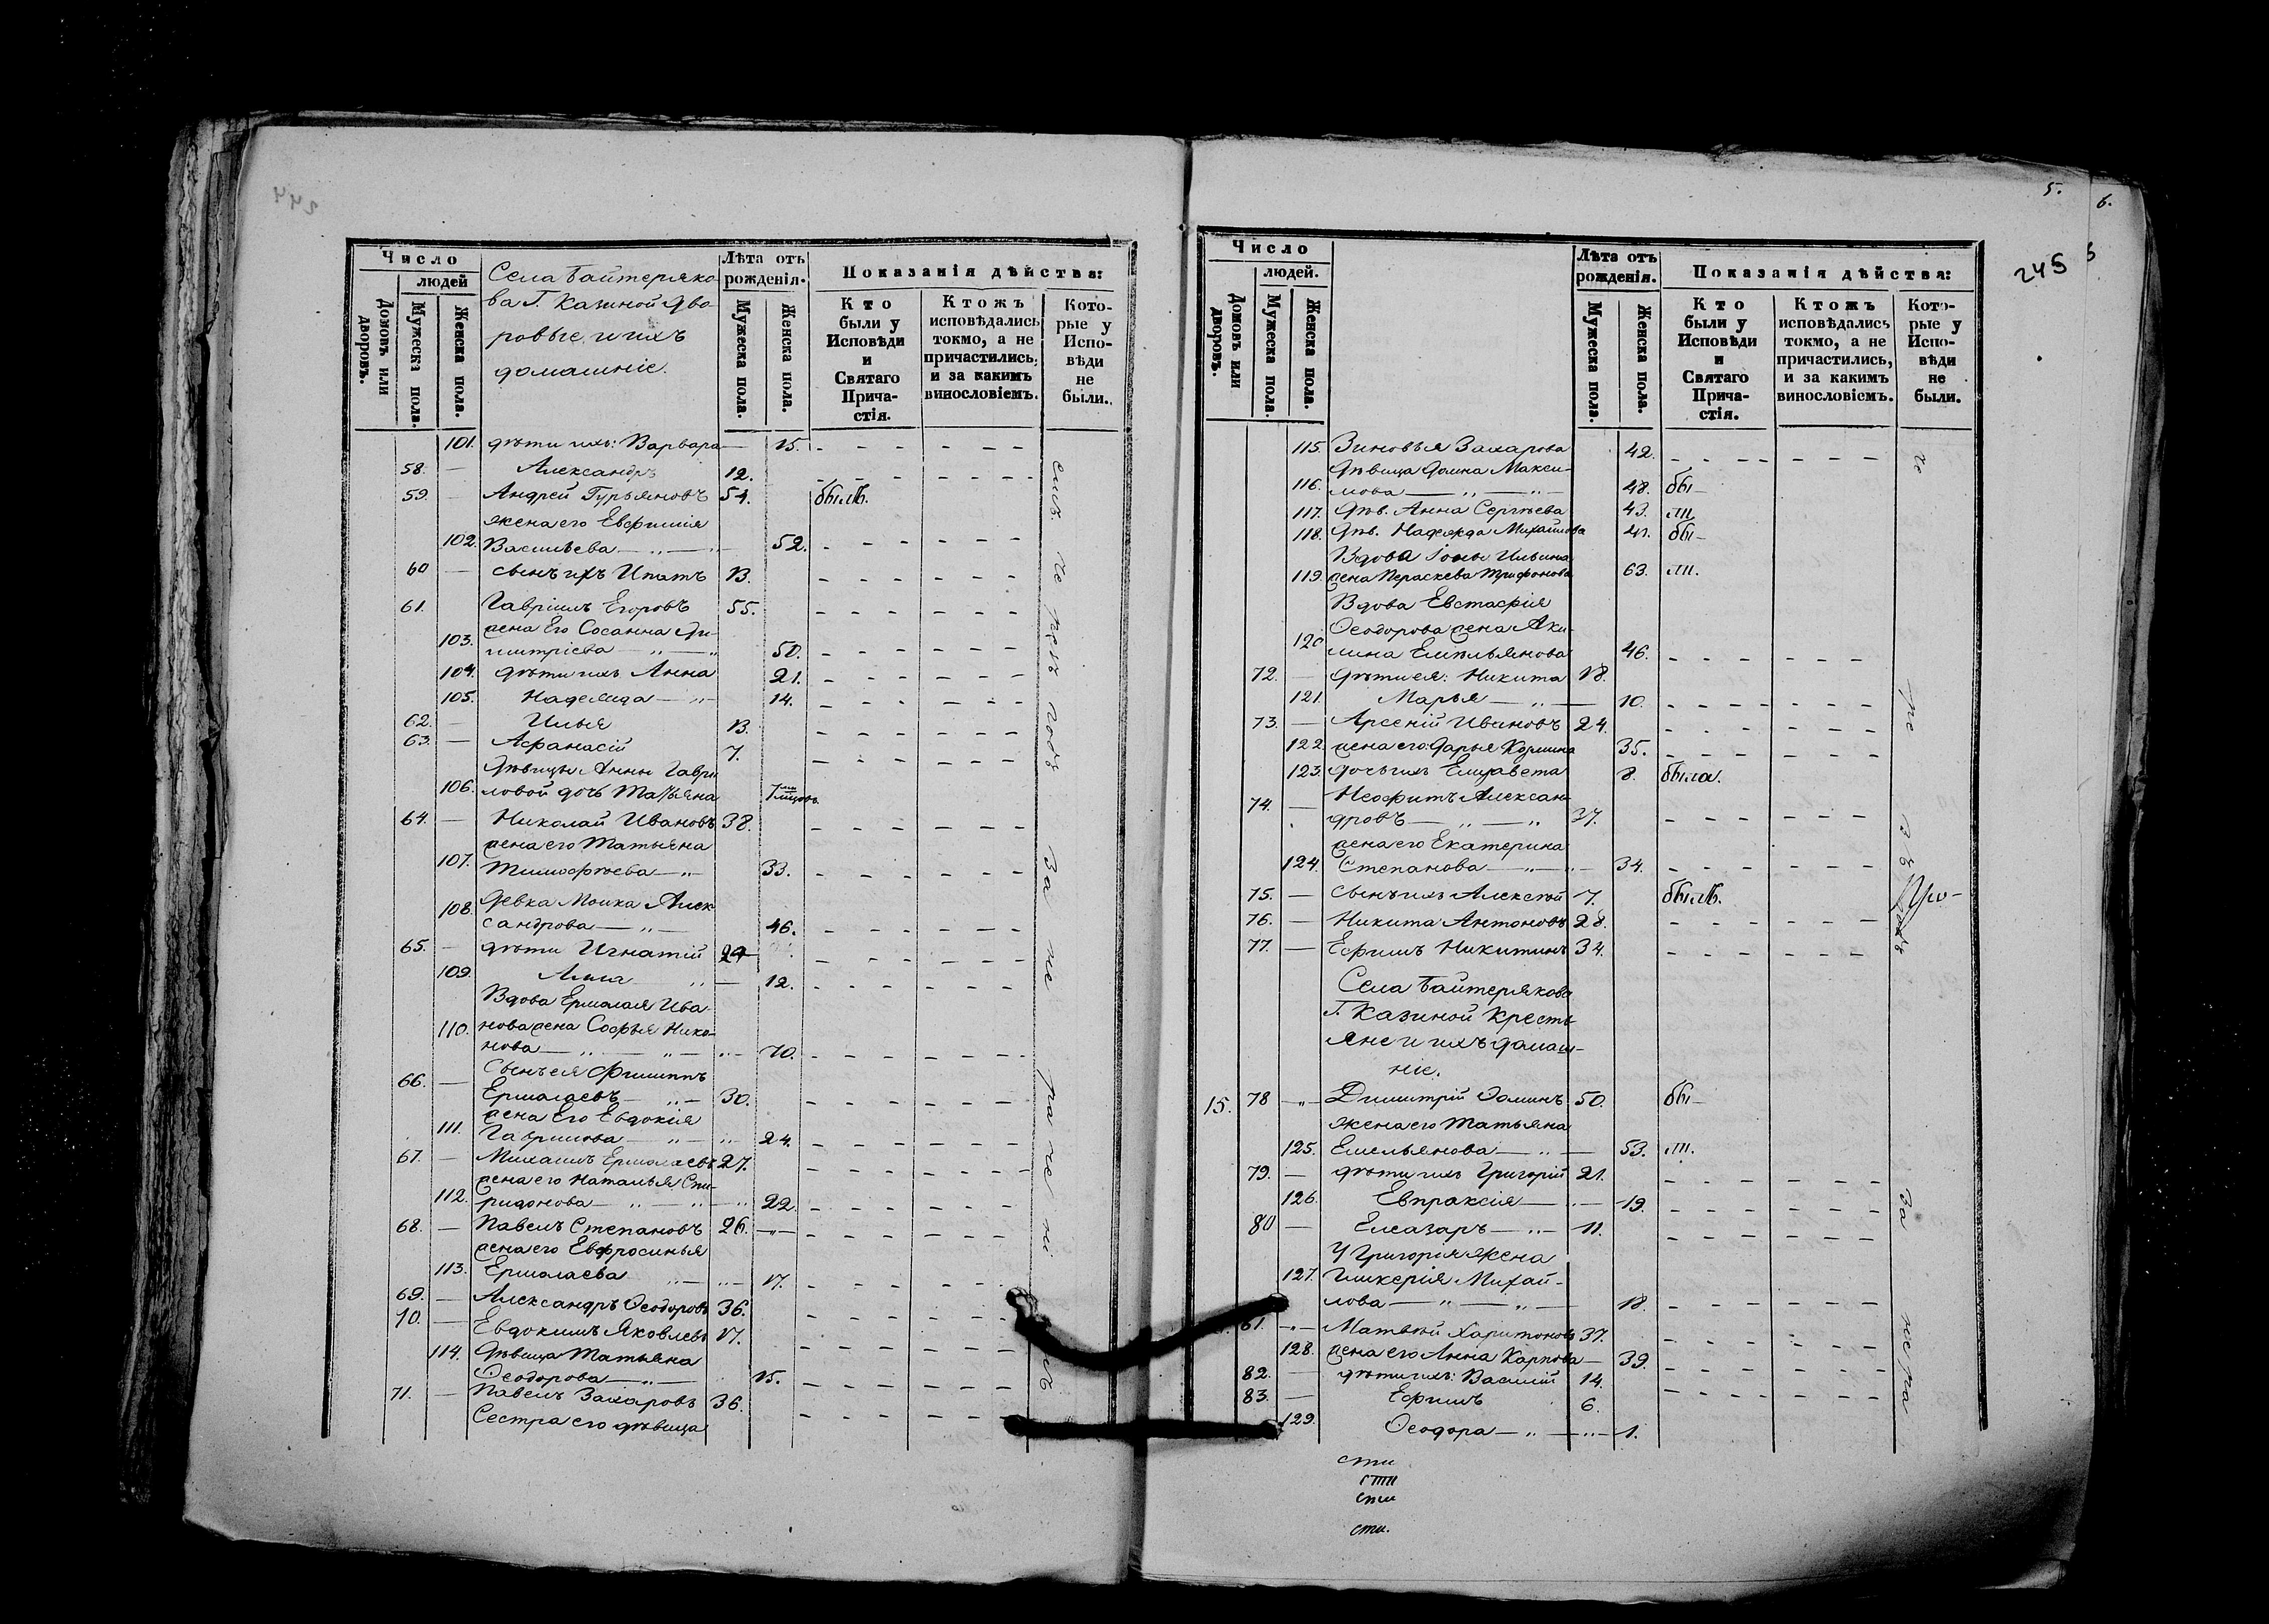 244
Число
людей
Домовъ или дворовъ.
Мужеска пола.
Женска пола.
Села Байтеряко-
ва Г. Казиной Дво-
ровые, и ихъ
домашніе.
Лѣта отъ рожденія.
Мужеска пола.
Женска пола.
Показанія дѣйства:
Кто были у Исповѣди и Святаго Прича-стія.
Ктожъ исповѣдались токмо, а не причастились, и за какимъ винословіемъ.
Кото-рые у Испо-вѣди не были.
101. дѣти ихъ: Варвара — 15.
58. — Александръ 12.
59. — Андрей Гурьяновъ 54. былъ.
жена его Евфимія
102. Васильева — „ — „ 52.
60 — сынъ ихъ Ипатъ 13.
61. Гавріилъ Егоровъ 55.
жена Его Сосанна Ди-
103. митріева — „ — „ 50.
104. дѣти ихъ Анна 21.
105. Надежда — „ — 14.
62. — Илья 13.
63. — Афанасій 7.
Дѣвицы Анны Гаври
106. ловой дочь Татьяна
64. — Николай Ивановъ 38.
жена его Татьяна
107. Тимофѣева — „ — 33.
108. Девка Алек
сандрова — „ — 46.
65. — дѣти Игнатій 24
109. Анна „ — 12.
Вдова Ермолая Ива-
110. нова жена Софья Нико-
нова — „ — „ — „ — 70.
Сынъ ея Филиппъ
66. — Ермолаевъ — „ — 30.
жена Его Евдокія
111. Гаврилова — „ — „ 24.
67. — Михаилъ Ермолаевъ 27.
жена его Наталья Спи-
112. ридонова — „ — „ 22.
68. — Павелъ Степановъ 26. — „ —
жена его Евфросинья
113. Ермолаева „ — „ — 17.
69. — Александръ Ѳеодоровъ 36.
70. — Евдокимъ Яковлевъ 17.
114. Дѣвица Татьяна
Ѳеодорова — „ — 15.
71. — Павелъ Захаровъ 36.
Сестра его дѣвица
5.
6.
245
Число
людей.
Домовъ или дворовъ.
Мужеска пола.
Женска пола.
Лѣта отъ рожденія.
Мужеска пола.
Женска пола.
Показанія дѣйства:
Кто были у Исповѣди и Святаго Прича-стія.
Ктожъ исповѣдались токмо, а не причастились, и за какимъ винословіемъ.
Кото-рые у Испо-вѣди не были.
115. Зиновья Захарова 42.
Дѣвица Домна Макси-
116. мова — „ — „ — 48. бы-
117. Дѣв. Анна Сергѣева 43. ли.
118. Дѣв. Надежда Михайлова 41. бы-
Вдова Іоны Ильина
119. жена Пераскева Трифонова 63. ли.
Вдова Евстафія
Ѳеодорова жена Аки-
120 лина Емельянова 46.
72. — дѣти ея: Никита 18.
121. Марья — „ — 10.
73. — Арсеній Ивановъ 24.
122. жена его: Дарья 35.
123. дочь ихъ Елизавета 8. была.
Неофитъ Алексан-
74. — дровъ — „ — „ 37.
жена его Екатерина
124. Степанова — „ — „ — 34.
75. — сынъ ихъ Алексѣй 7. былъ.
76. — Никита Антоновъ 28.
77. — Ефимъ Никитинъ 34.
Села Байтерякова
Г. Казиной Кресть-
яне и ихъ домаш-
ніе.
15. 78 — „ — Димитрій Ѳоминъ 50. бы-
жена его Татьяна
125. Емельянова — „ — 53. ли.
79. — дѣти ихъ Григорій 21.
126. Евпраксія — „ — 19.
80 — Елеазаръ — „ — 11.
У Григорія жена
127. Гликерія Михай-
лова — „ — „ — 18.
81. — „ — Матвѣй Харитоновъ 37.
128. жена его Анна Карпова — 39.
82. — дѣти ихъ: Василій 14.
83. — Ефимъ 6.
129. Ѳеодора — „ — „ — 1.
сти
сти
сти
сти.